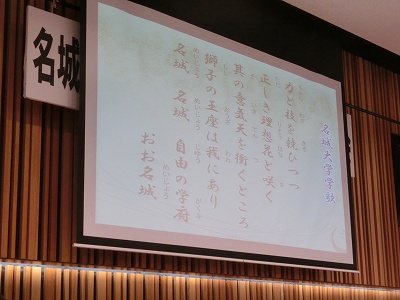 名城
名城大学学歌
力と技を競ひつつ
正しき理想花と咲く
其の意気天を衝くところ
獅子の王座は我にあり
名城、名城、自由の学府
おお名城